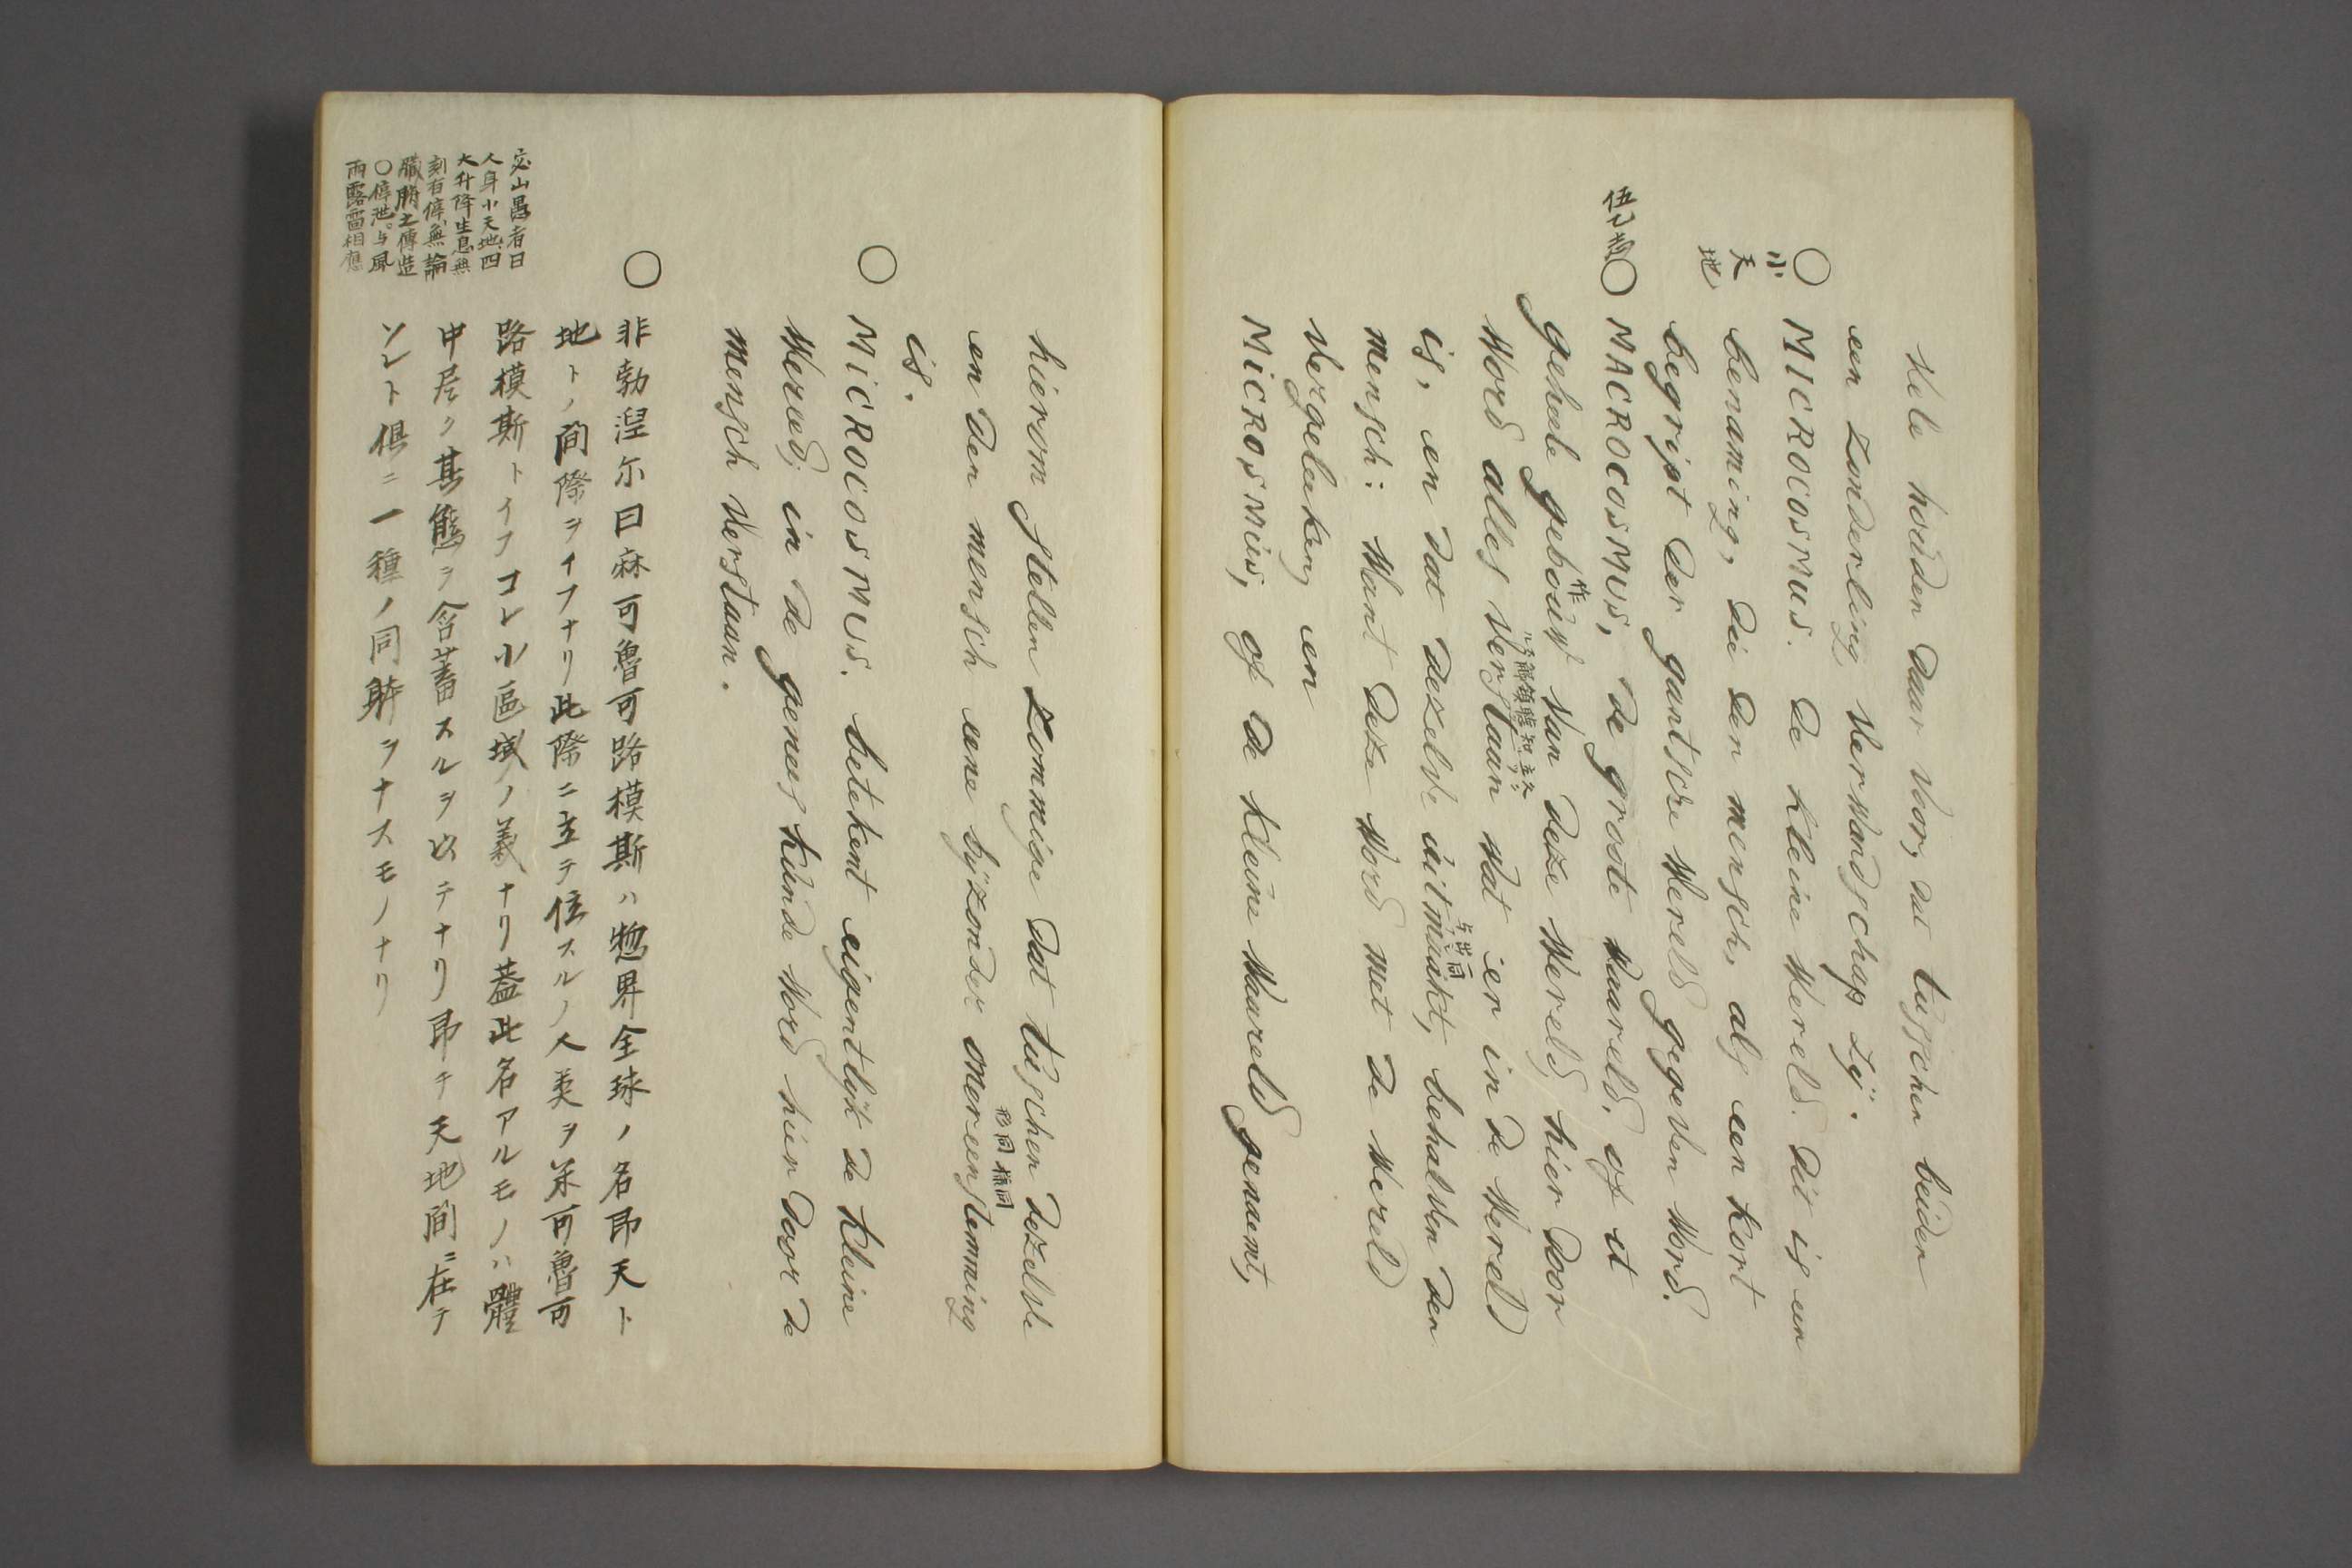 vele houden daar voor, dat tusschen beiden
een zonderling verwandschap zij.
○ MICROCOSMUS. de kleine wereld. dit is een
小
天
地
benaming, die den mensch, als een kort
begript der gantsche wereld gegeven word.
○ MACROCOSMUS, de groote waareld. of it
geheele gebouw van deze wereld, hier door
作
word alles verstaan wat er in de wereld
is, en dat dezelve uitmaakt, behalven den
mensch: want deze word met de wereld
vergeleken, en
MICROSMUS, of de kleine waereld genaamt,
hierom stellen zommige dat tuschen dezelve
en den mensch eene bijzonder overeenstemming
形同 様同
is.
○ MICROCOSMUS. betekent eigentlijk de kleine
wereld; in de geneeskunde word hier door de
mensch verstaan.
○ 非勃涅尓曰麻可魯可路模斯ハ惣界全球ノ名即天ト
地トノ間際ヲイフナリ此際ニ立テ位スルノ人类ヲ米可魯可
路模斯トイフコレ小區域ノ義ナリ蓋此名アルモノハ體
中尽ク其態ヲ含蓄スルヲ以テナリ即チ天地間ニ在テ
ソレト倶ニ一種ノ同躰ヲナスモノナリ
山愚者曰
人身小天地四
大升降生息無
刻有停無論
臓腑之傳造
○停泄与風
雨露雷相應